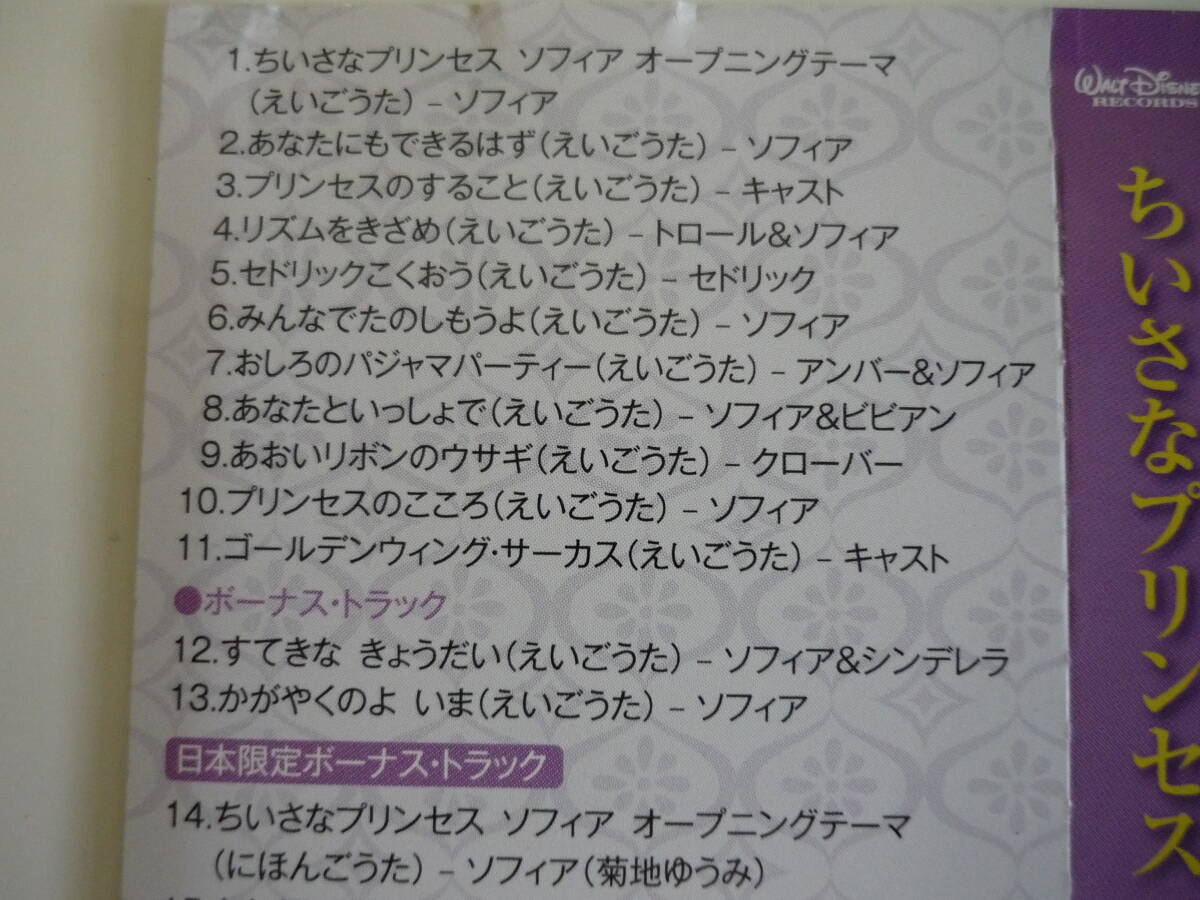 1.ちいさなプリンセス ソフィア オープニングテーマ
(えいごうた) – ソフィア
2.あなたにもできるはず(えいごうた) – ソフィア
3.プリンセスのすること(えいごうた) – キャスト
4.リズムをきざめ(えいごうた) – トロール&ソフィア
5.セドリックこくおう(えいごうた) – セドリック
6.みんなでたのしもうよ(えいごうた) – ソフィア
7.おしろのパジャマパーティー(えいごうた) – アンバー&ソフィア
8.あなたといっしょで(えいごうた) – ソフィア&ビビアン
9.あおいリボンのウサギ(えいごうた) – クローバー
10.プリンセスのこころ(えいごうた) – ソフィア
11.ゴールデンウィング・サーカス(えいごうた) – キャスト
●ボーナス・トラック
12.すてきな きょうだい(えいごうた) – ソフィア&シンデレラ
13.かがやくのよ いま(えいごうた) – ソフィア
日本限定ボーナス・トラック
14.ちいさなプリンセス ソフィア オープニングテーマ
(にほんごうた) – ソフィア(菊地ゆうみ)
WALT DISNEY
RECORDS
ちいさなプリンセス